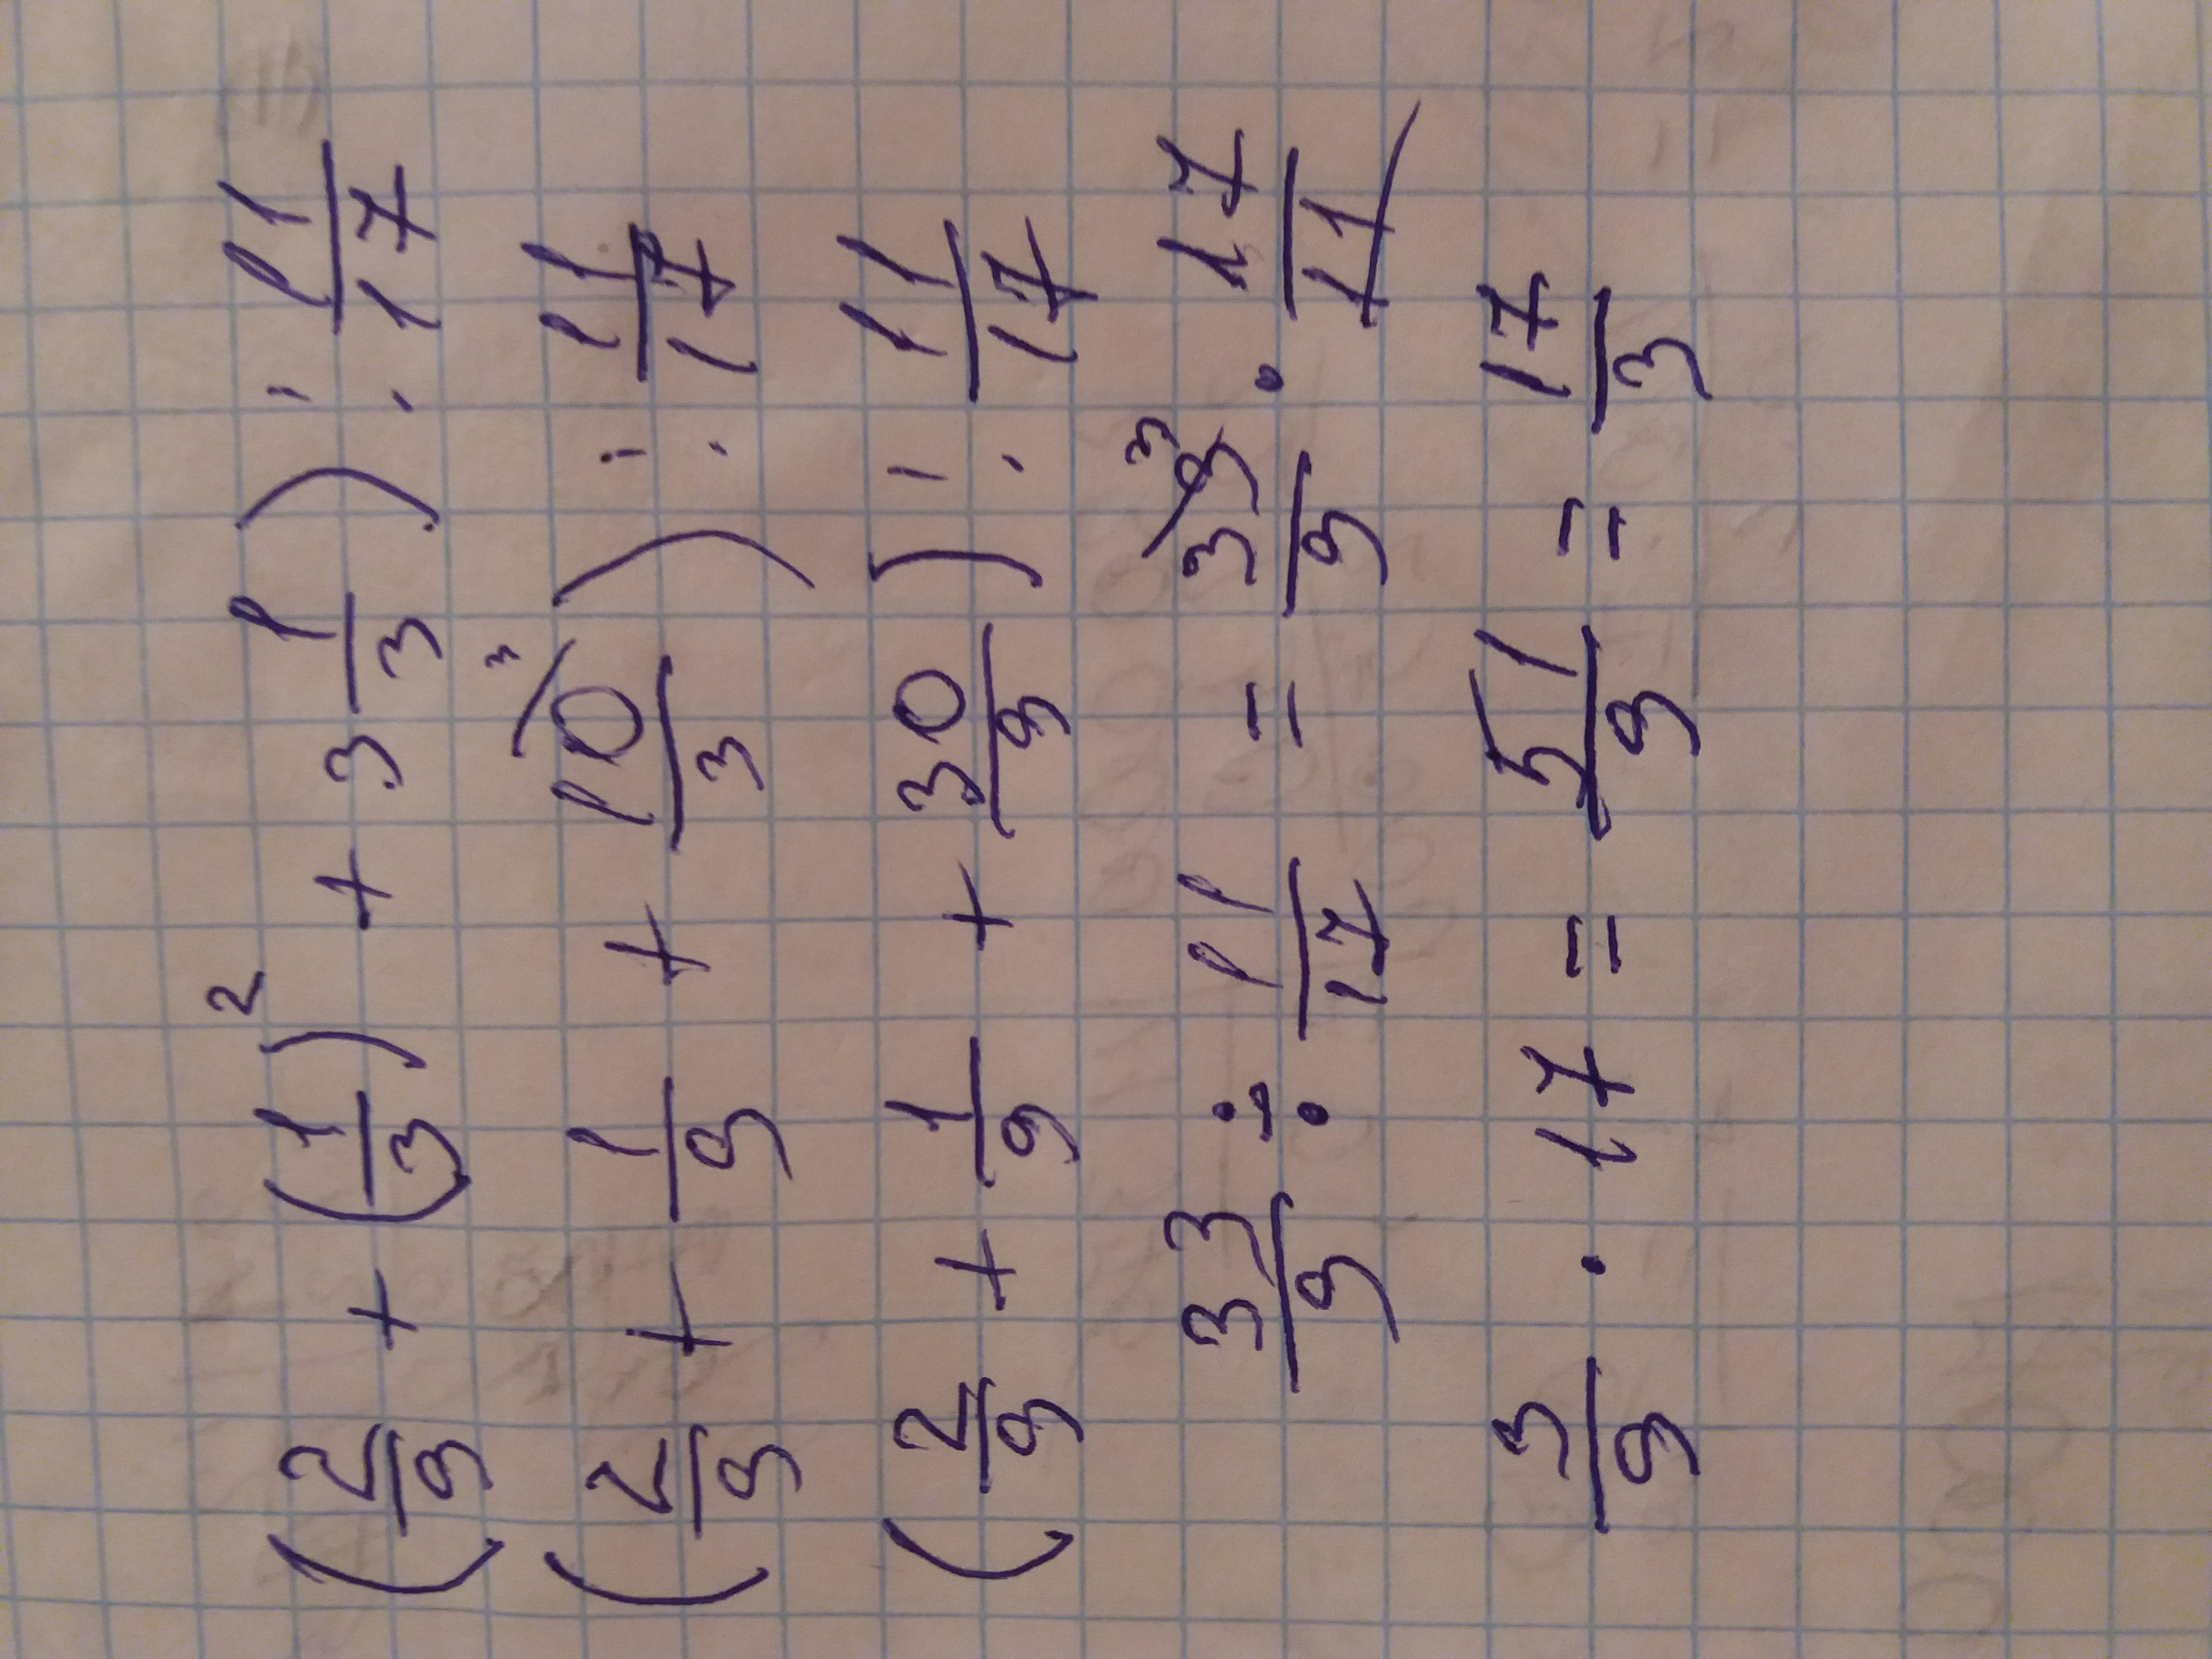 (2/9 + (1/3)² + 3 1/3) : 11/17
(2/9 + 1/9 + 10/3 ³) : 11/17
(2/9 + 1/9 + 30/9) : 11/17
33/9 : 11/17 = 33/9 ³ · 17/11
3/9 · 17 = 51/9 = 17/3